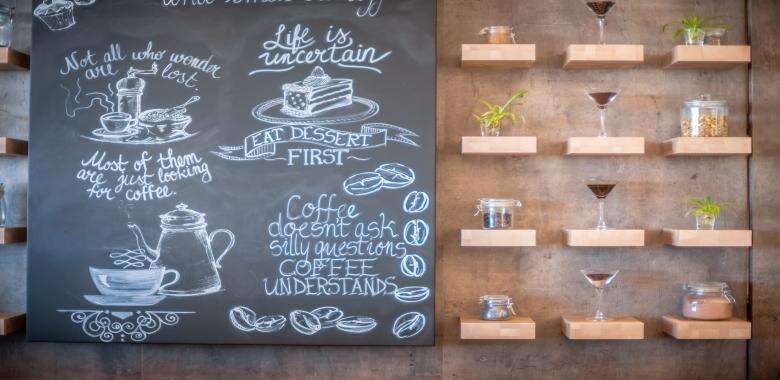 Not all who wonder
are lost.
Most of them
are just looking
for coffee.
Life is
uncertain
EAT DESSERT
FIRST
Coffee
doesnt ask
silly questions
COFFEE
UNDERSTANDS